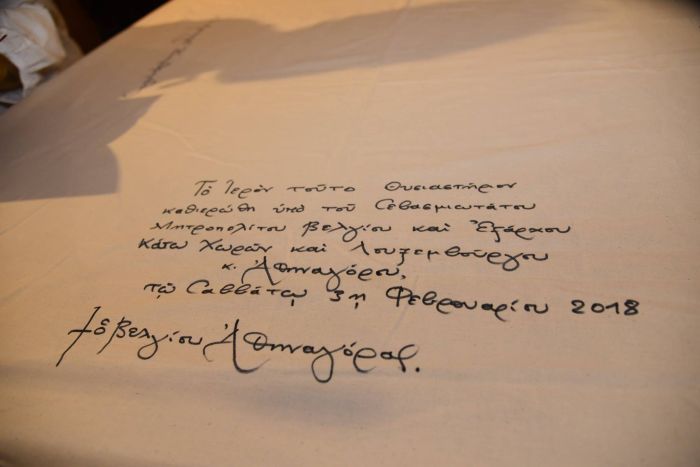 Τὸ Ἱερὸν τοῦτο Θυσιαστήριον
καθιερώθη ὑπὸ τοῦ Σεβασμιωτάτου
Μητροπολίτου Βελγίου καὶ Ἐξάρχου
Κάτω Χωρῶν καὶ Λουξεμβούργου
κ. Ἀθηναγόρου,
τῷ Σαββάτῳ 3ῃ Φεβρουαρίου 2018
† ὁ Βελγίου Ἀθηναγόρας.